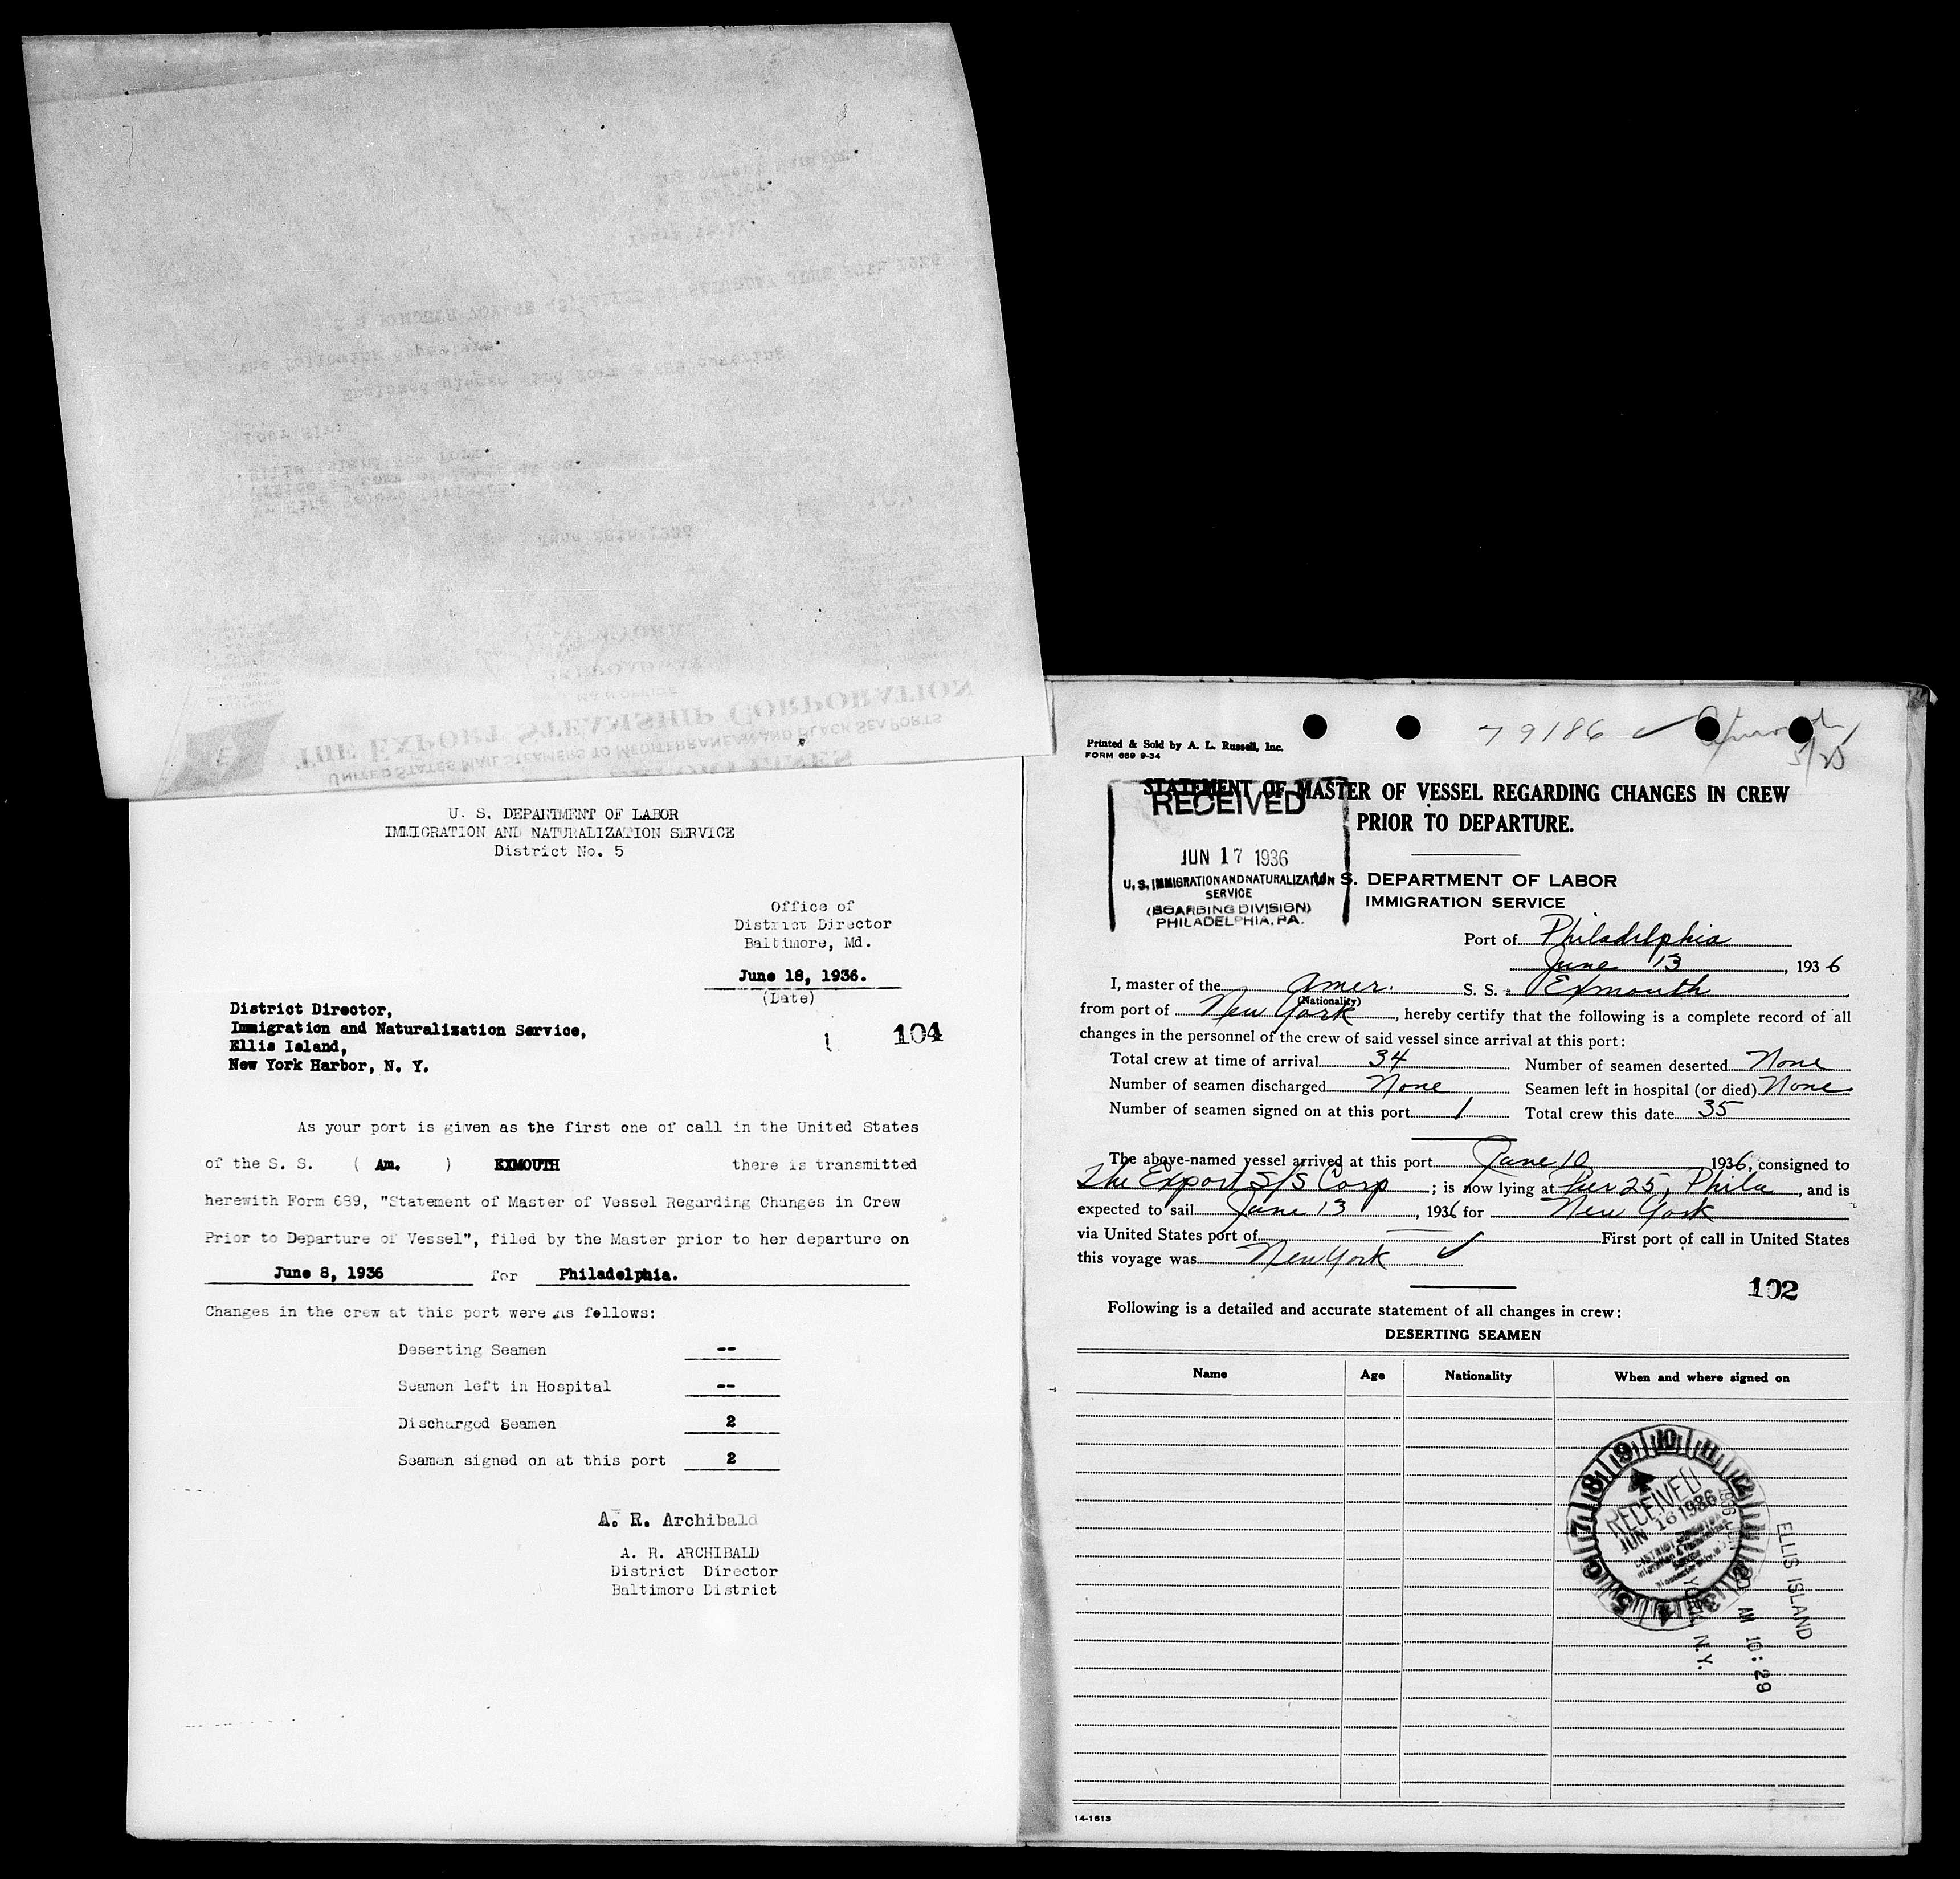 THE EXPORT STEAMSHIP CORPORATION
UNITED STATES MAIL STEAMERS TO MEDITERRANEAN AND BLACK SEA PORTS
Dear Sir:
the following
U. S. DEPARTMENT OF LABOR
IMMIGRATION AND NATURALIZATION SERVICE
District No. 5
Office of
District Director
Baltimore, Md.
June 18, 1936.
(Date)
District Director,
Immigration and Naturalization Service,
Ellis Island,
New York Harbor, N. Y.
104
As your port is given as the first one of call in the United States
of the S. S. ( Am. ) EXMOUTH there is transmitted
herewith Form 689, "Statement of Master of Vessel Regarding Changes in Crew
Prior to Departure of Vessel", filed by the Master prior to her departure on
June 8, 1936 for Philadelphia.
Changes in the crew at this port were as follows:
Deserting Seamen --
Seamen left in Hospital --
Discharged Seamen 2
Seamen signed on at this port 2
A. R. Archibald
A. R. ARCHIBALD
District Director
Baltimore District
79186 ✓
5/25
Printed & Sold by A. L. Russell, Inc.
FORM 689 9-34
STATEMENT OF MASTER OF VESSEL REGARDING CHANGES IN CREW
PRIOR TO DEPARTURE.
RECEIVED
JUN 17 1936
U. S. IMMIGRATION AND NATURALIZATION
SERVICE
(BOARDING DIVISION)
PHILADELPHIA, PA.
U. S. DEPARTMENT OF LABOR
IMMIGRATION SERVICE
Port of Philadelphia
June 13, 1936
I, master of the Amer. S. S. Exmouth
(Nationality)
from port of New York, hereby certify that the following is a complete record of all
changes in the personnel of the crew of said vessel since arrival at this port:
Total crew at time of arrival 34 Number of seamen deserted None
Number of seamen discharged None Seamen left in hospital (or died) None
Number of seamen signed on at this port 1 Total crew this date 35
The above-named vessel arrived at this port June 10 1936, consigned to
The Export S/S Corp; is now lying at Pier 25, Phila, and is
expected to sail June 13, 1936 for New York
via United States port of First port of call in United States
this voyage was New York ✓
102
Following is a detailed and accurate statement of all changes in crew:
DESERTING SEAMEN
Name Age Nationality When and where signed on
RECEIVED
JUN 16 1936
ELLIS ISLAND
AM 10:29
N.Y.
14-1613